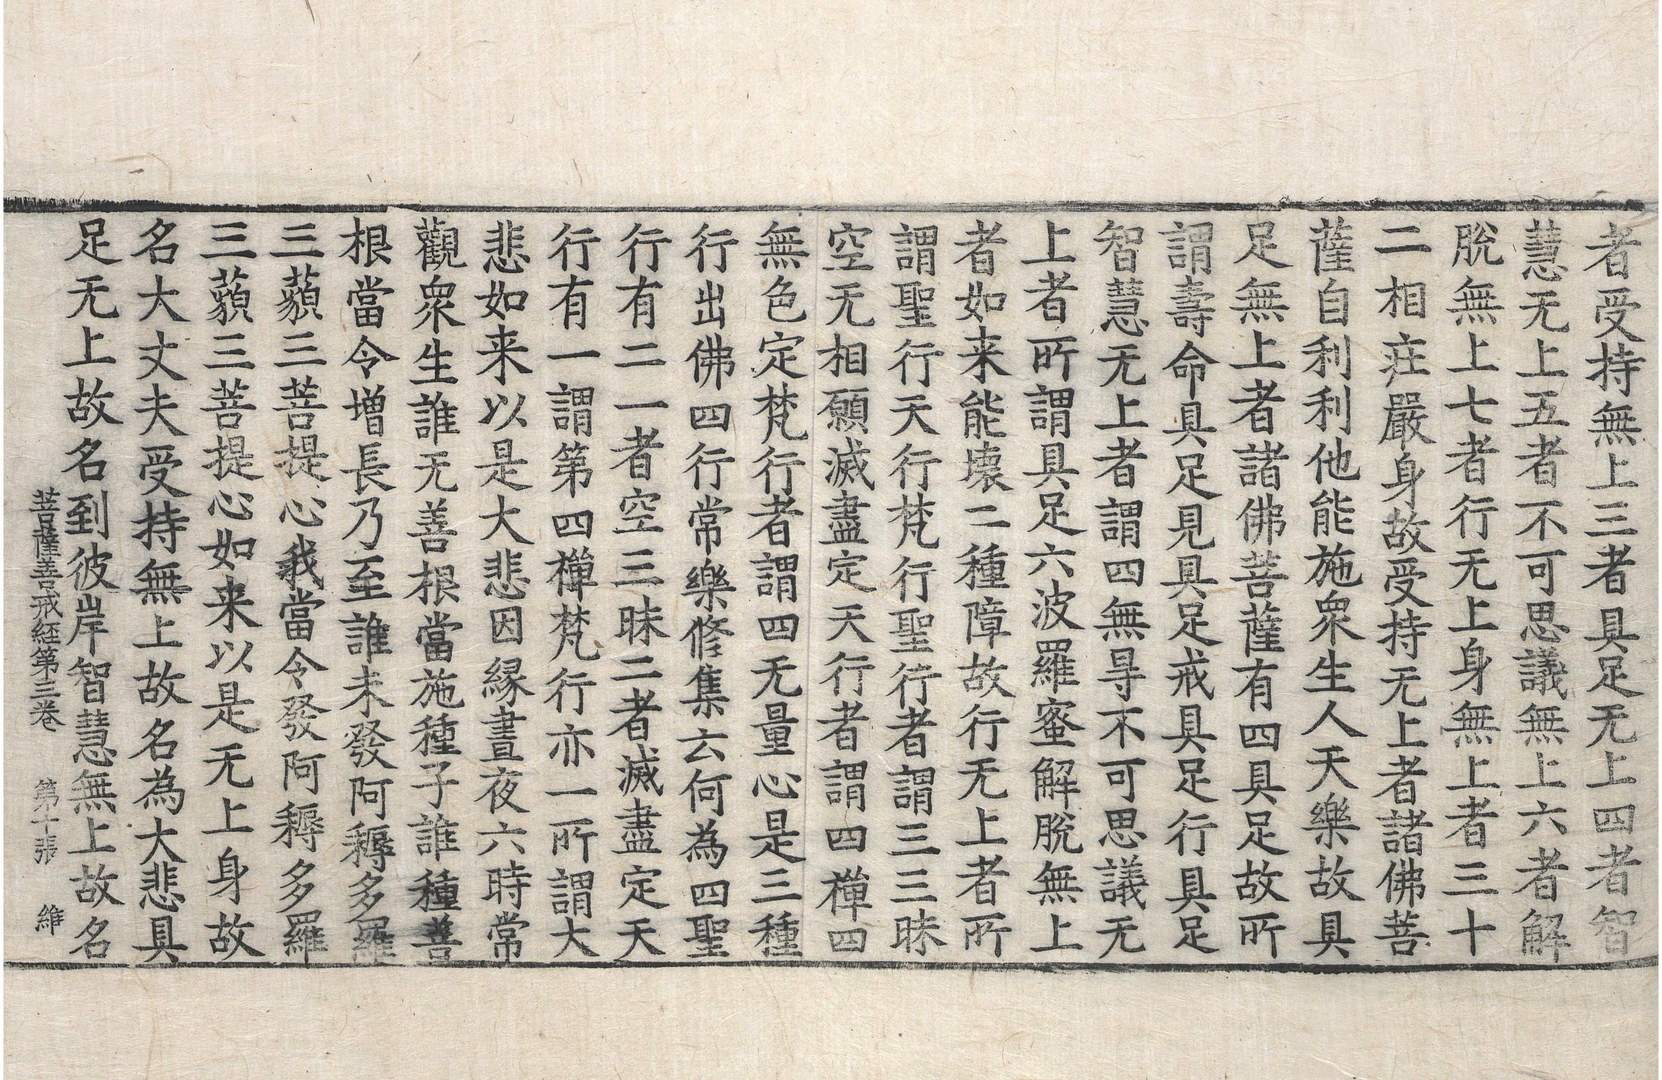 者受持無上三者具足无上四者智
慧无上五者不可思議無上六者解
脫無上七者行无上身無上者三十
二相莊嚴身故受持无上者諸佛菩
薩自利利他能施衆生人天樂故具
足無上者諸佛菩薩有四具足故所
謂壽命具足見具足戒具足行具足
智慧无上者謂四無㝵不可思議无
上者所謂具足六波羅蜜解脫無上
者如来能壞二種障故行无上者所
謂聖行天行梵行聖行者謂三三昧
空无相願滅盡定天行者謂四禪四
無色定梵行者謂四无量心是三種
行出佛四行常樂修集云何為四聖
行有二一者空三昧二者滅盡定天
行有一謂第四禪梵行亦一所謂大
悲如来以是大悲因縁晝夜六時常
觀衆生誰无善根當施種子誰種善
根當令增長乃至誰未發阿耨多羅
三藐三菩提心我當令發阿耨多羅
三藐三菩提心如来以是无上身故
名大丈夫受持無上故名為大悲具
足无上故名到彼岸智慧無上故名
菩薩善戒経第三卷 第十張 維